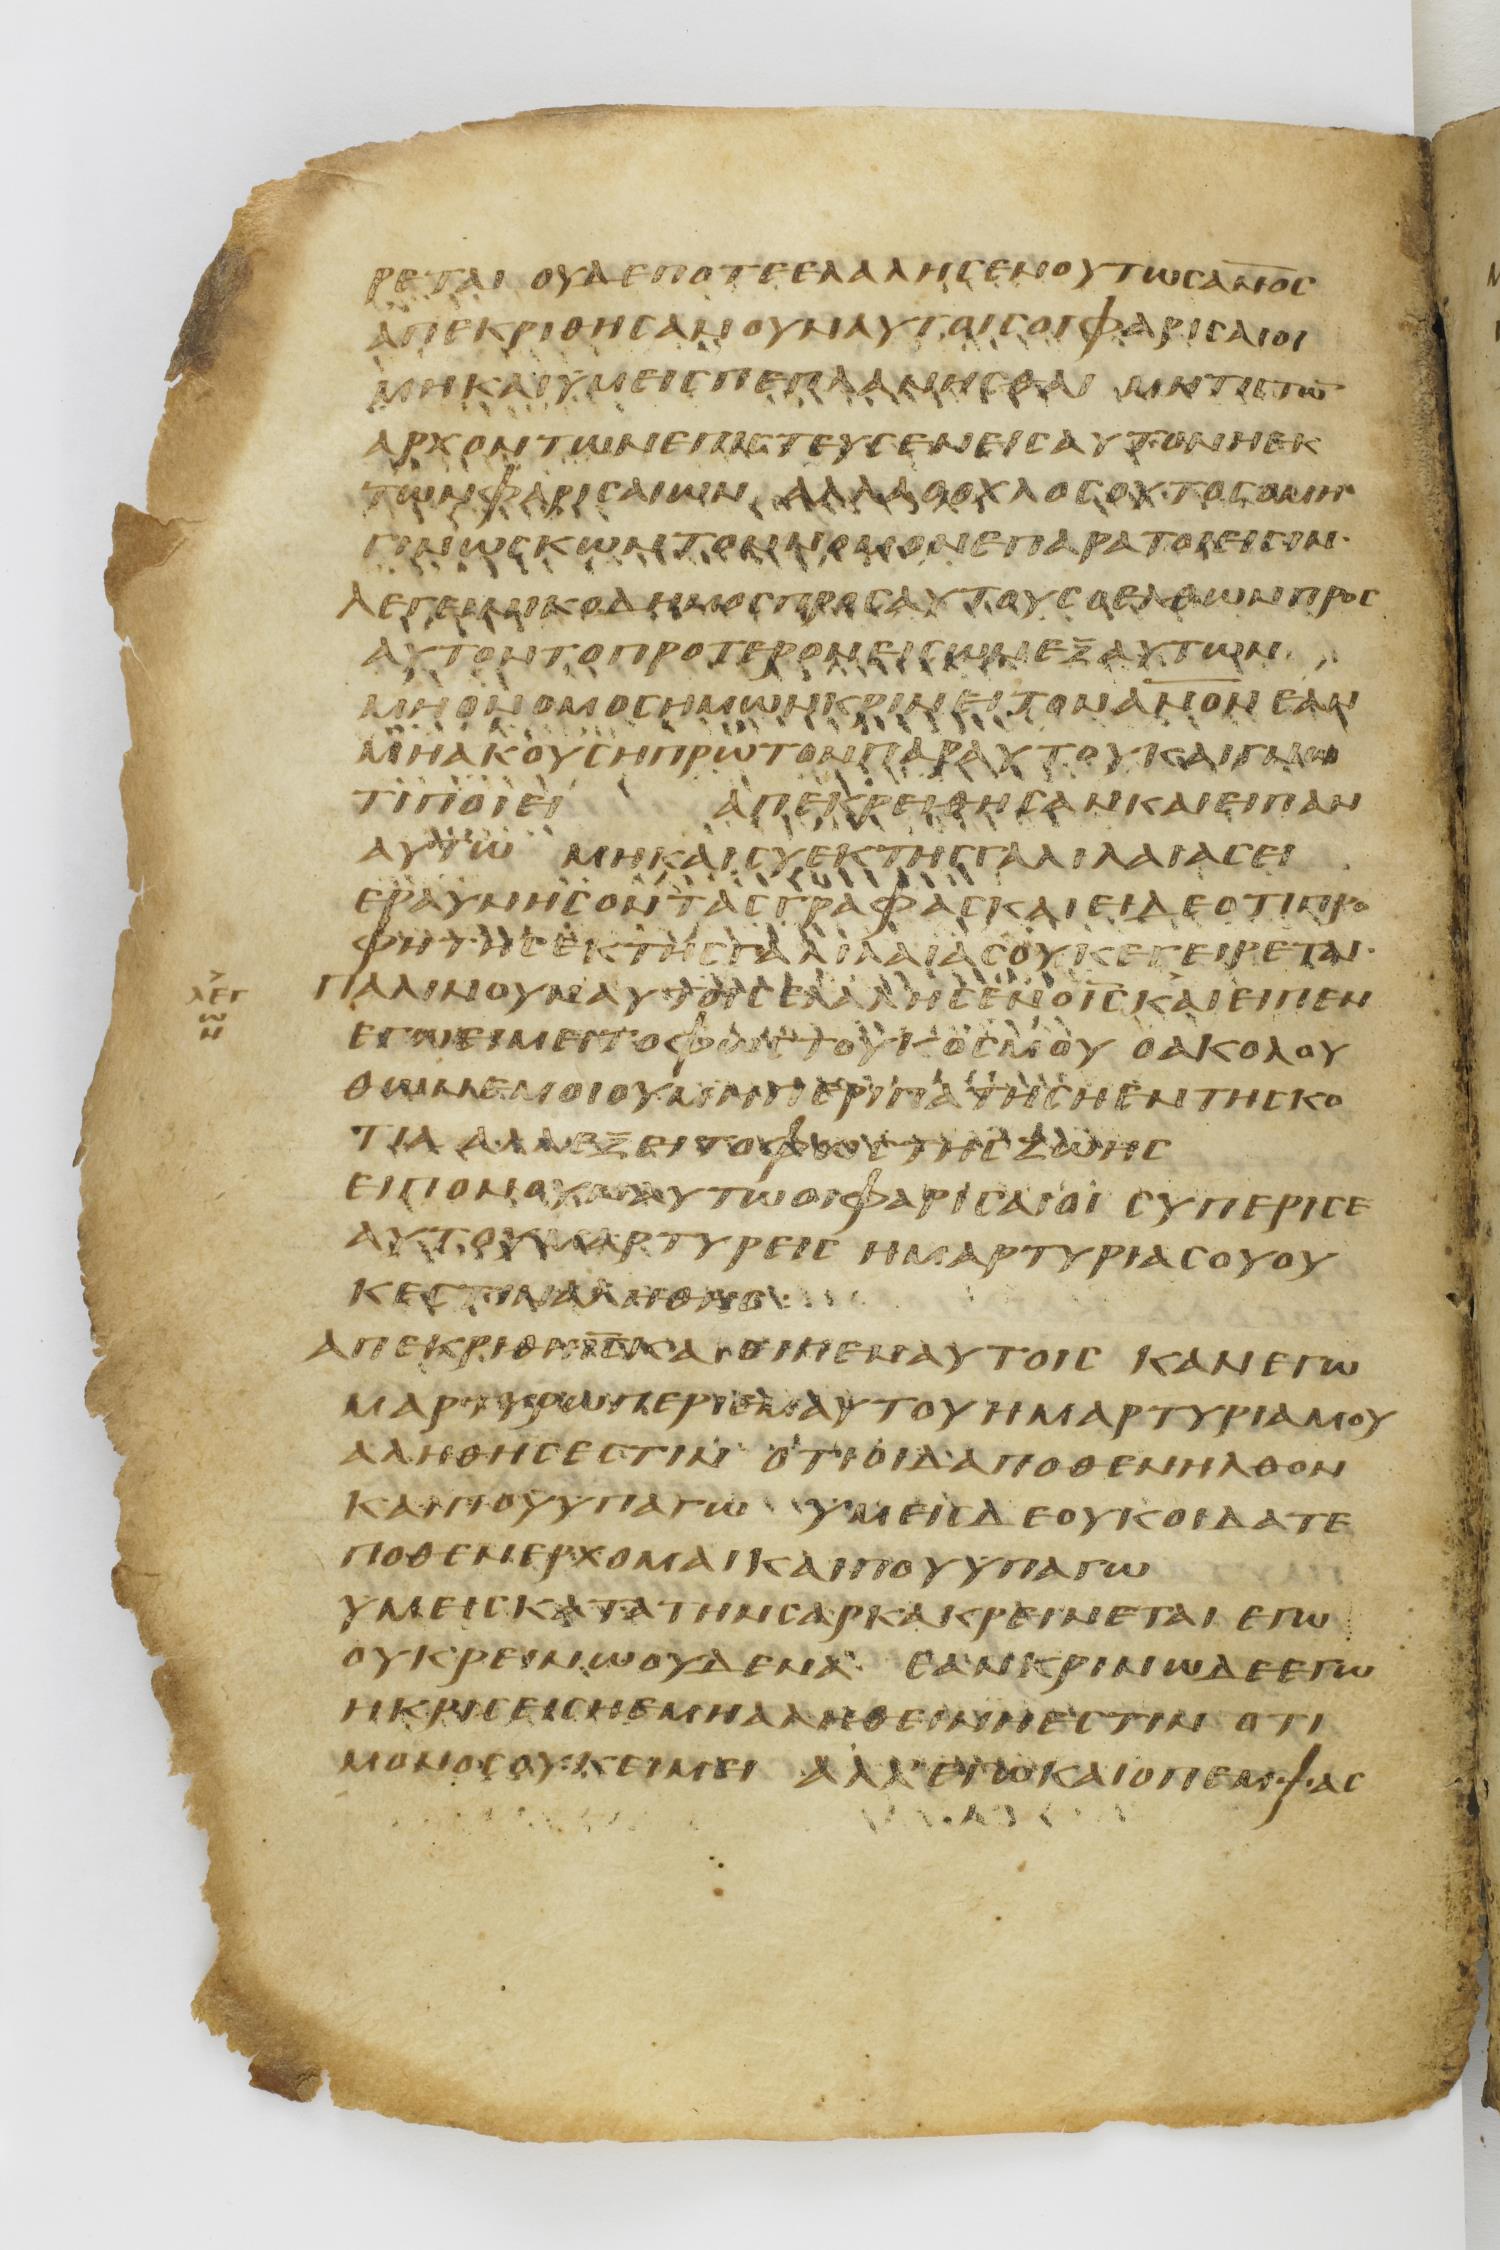 ρεται ουδεποτεελαλησενουτωσα̅ν̅ο̅σ̅
απεκριθησανουναυτοισοιφαρισαιοι
μηκαιυμεισπεπλανησθαι μητιστω̅
αρχοντωνεπιστευσενεισαυτονηεκ
τωνφαρισαιων αλλαοοχλοσουτοσομη
γινωσκωντοννομονεπαρατοιεισιν·
λεγεινικοδημοσπροσαυτουσοελθωνπροσ
αυτοντοπροτερονεισωνεξαυτων
μηονομοσημωνκρινειτονα̅ν̅ο̅ν̅εαν
μηακουσηπρωτονπαραυτουκαιγνω
τιποιει απεκρειθησανκαιειπαν
αυτω μηκαισυεκτησγαλιλαιασει
εραυνησοντασγραφασκαιειδεοτιπρο
φητησεκτησγαλιλαιασουκεγειρεται·
παλινουναυτοισελαλησενο̅ι̅σ̅καιειπεν
εγωειμειτοφωστουκοσμου οακολου
θωνεμοιουμηπεριπατησηεντησκο
τια αλλεξειτοφωστησζωησ
ειπονουναυτωοιφαρισαιοι συπερισε
αυτουμαρτυρεισ ημαρτυριασουου
κεστιναληθησ·
απεκριθηι̅σ̅καιειπεναυτοισ κανεγω
μαρτυρωπεριεμαυτουημαρτυριαμου
αληθησεστιν οτιοιδαποθενηλθον
καιπουυπαγω υμεισδεουκοιδατε
ποθενερχομαικαιπουυπαγω
υμεισκατατηνσαρκακρεινεται εγω
ουκρεινωουδενα εανκρινωδεεγω
ηκρισεισηεμηαληθεινηεστιν οτι
μονοσουκειμει αλλεγωκαιοπεμψασ